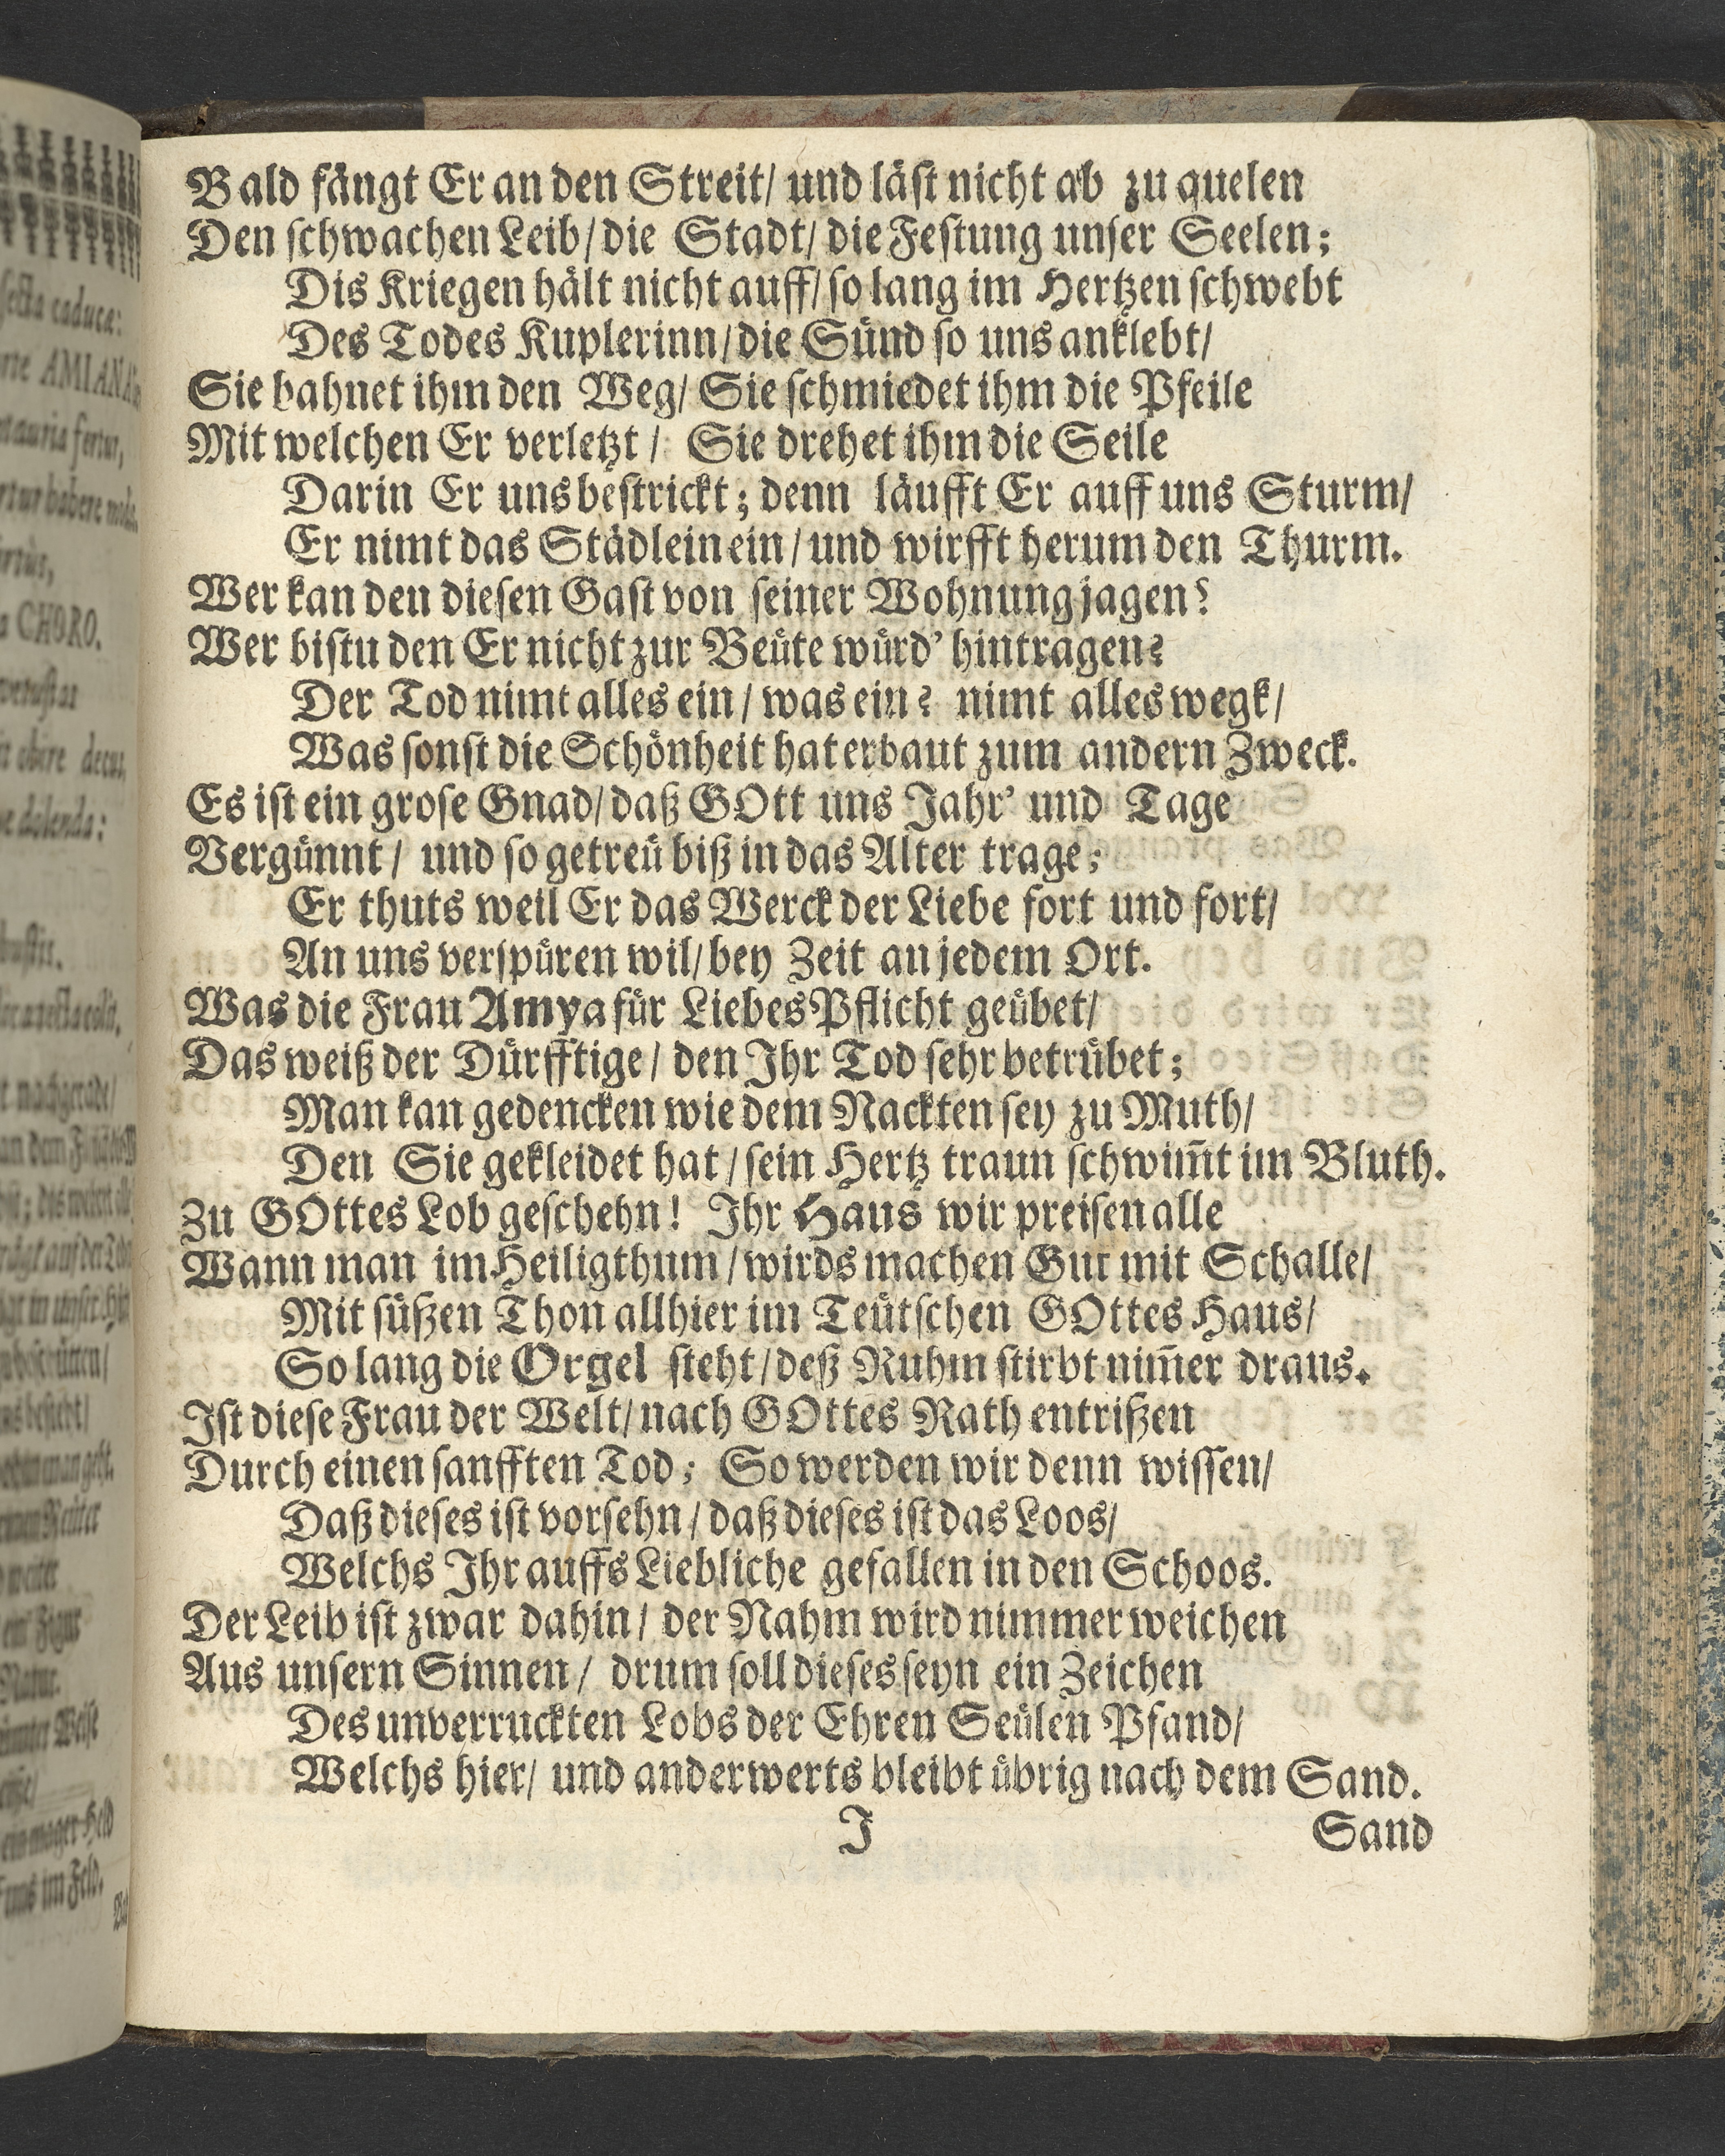 Bald fängt Er an den Streit/ und läst nicht ab zu quelen
Den schwachen Leib/ die Stadt/ die Festung unser Seelen;
Dis Kriegen hält nicht auff/ so lang im Hertzen schwebt
Des Todes Kuplerinn/ die Sünd so uns anklebt/
Sie bahnet ihm den Weg/ Sie schmiedet ihm die Pfeile
Mit welchen Er verletzt/ Sie drehet ihm die Seile
Darin Er uns bestrickt; denn läufft Er auff uns Sturm/
Er nimt das Städlein ein/ und wirfft herum den Thurm.
Wer kan den diesen Gast von seiner Wohnung jagen?
Wer bistu den Er nicht zur Beüte würd' hintragen?
Der Tod nimt alles ein/ was ein? nimt alles wegk/
Was sonst die Schönheit hat erbaut zum andern Zweck.
Es ist ein grose Gnad/ daß GOtt uns Jahr' und Tage
Vergünnt/ und so getreü biß in das Alter trage;
Er thuts weil Er das Werck der Liebe fort und fort/
An uns verspüren wil/ bey Zeit an jedem Ort.
Was die Frau Amya für Liebes Pflicht geübet/
Das weiß der Dürfftige/ den Ihr Tod sehr betrübet;
Man kan gedencken wie dem Nackten sey zu Muth/
Den Sie gekleidet hat/ sein Hertz traun schwim̃t im Bluth.
Zu GOttes Lob geschehn! Ihr Haus wir preisen alle
Wann man im Heiligthum/ wirds machen Gut mit Schalle/
Mit süßen Thon allhier im Teütschen GOttes Haus/
So lang die Orgel steht/ deß Ruhm stirbt nim̃er draus.
Ist diese Frau der Welt/ nach GOttes Rath entrißen
Durch einen sanfften Tod; So werden wir denn wissen/
Daß dieses ist vorsehn/ daß dieses ist das Loos/
Welchs Ihr auffs Liebliche gefallen in den Schoos.
Der Leib ist zwar dahin/ der Nahm wird nimmer weichen
Aus unsern Sinnen/ drum soll dieses seyn ein Zeichen
Des unverruckten Lobs der Ehren Seülen Pfand/
Welchs hier/ und anderwerts bleibt übrig nach dem Sand.
J Sand